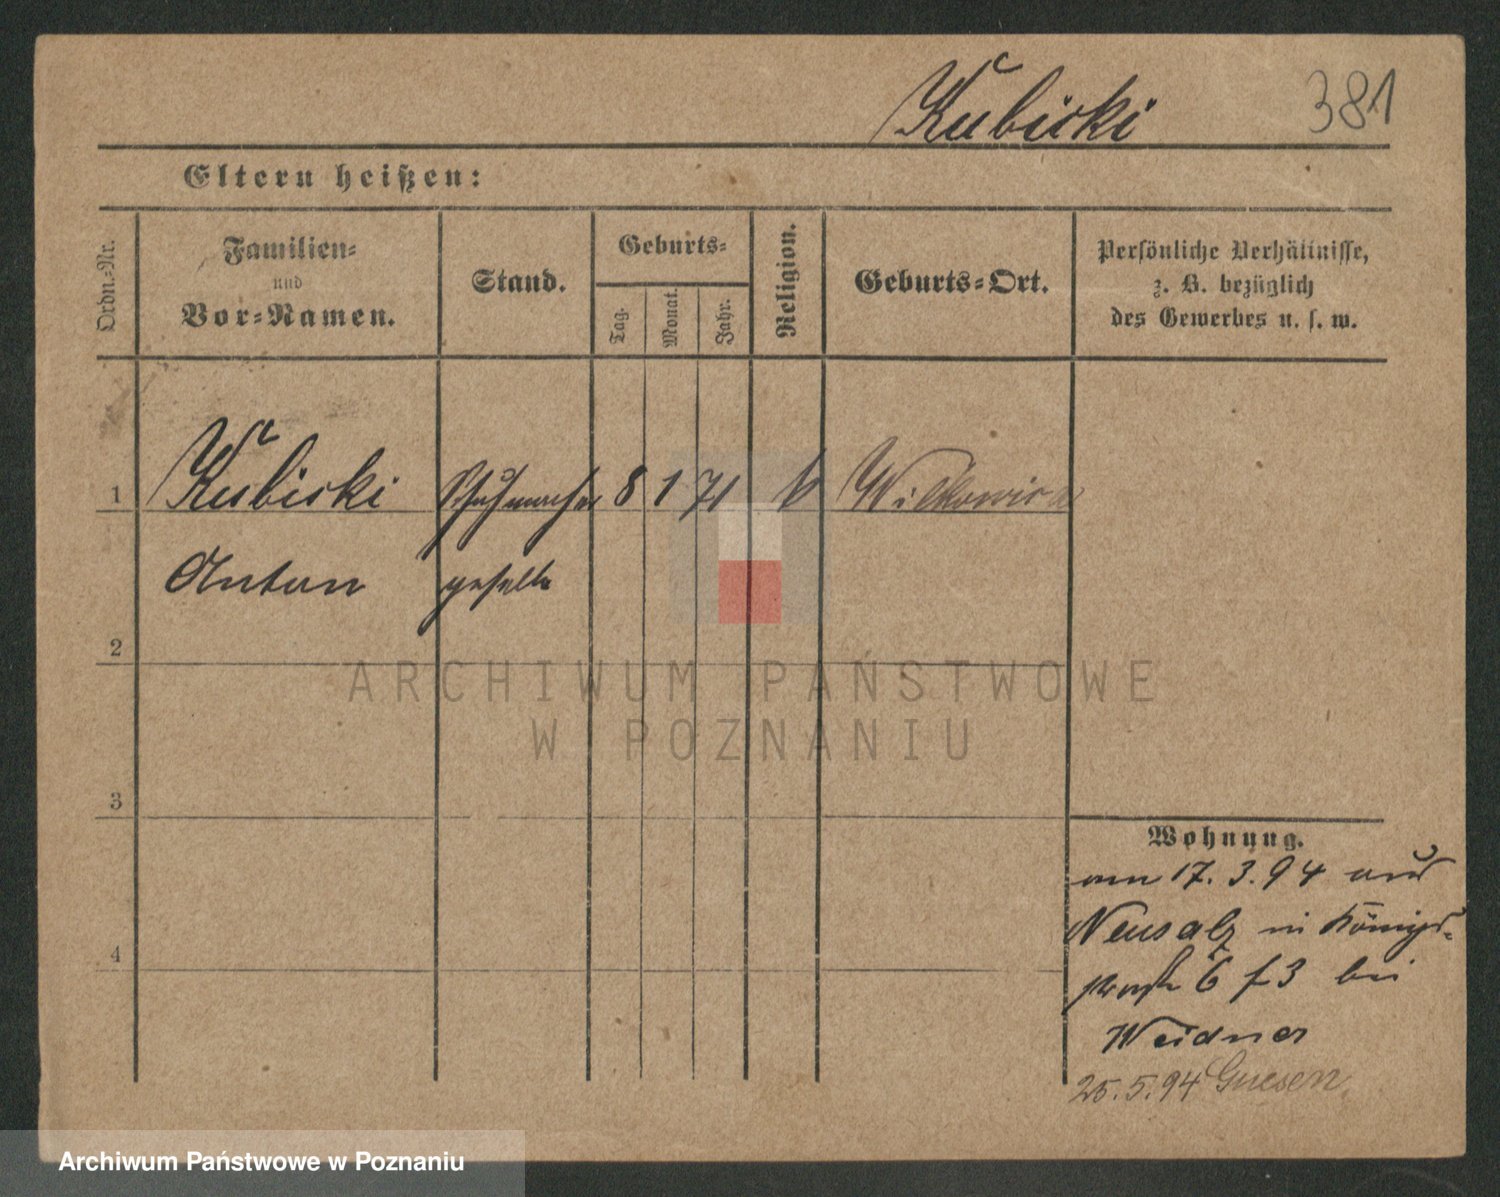 Kubicki 381
Eltern heißen:
Ordn.-Nr.
Familien-
und
Vor-Namen.
Stand.
Geburts-
Tag.
Monat.
Jahr.
Religion.
Geburts-Ort.
Persönliche Verhältnisse,
z. B. bezüglich
des Gewerbes u. s. w.
1 Kubicki Schuhmacher 8 1 71 k
Anton geselle
2
ARCHIWUM PAŃSTWOWE
W POZNANIU
3
Wohnung.
am 17.3.94 aus
Neusalz in Königs-
straße 6 f 3 bei
4
Weidner
25.5.94 Gnesen
Archiwum Państwowe w Poznaniu